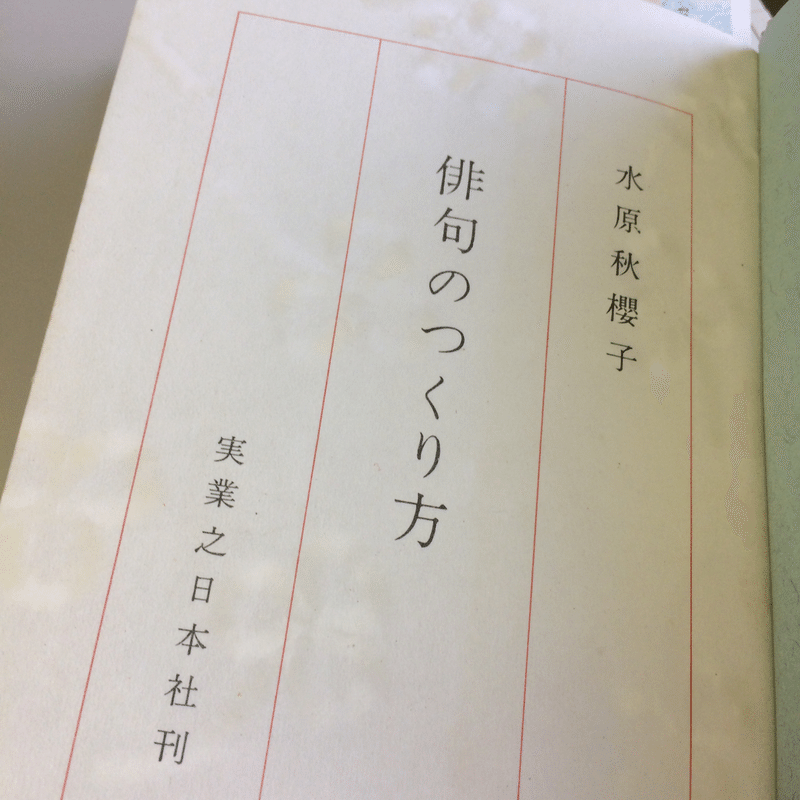 水原秋櫻子
俳句のつくり方
実業之日本社刊